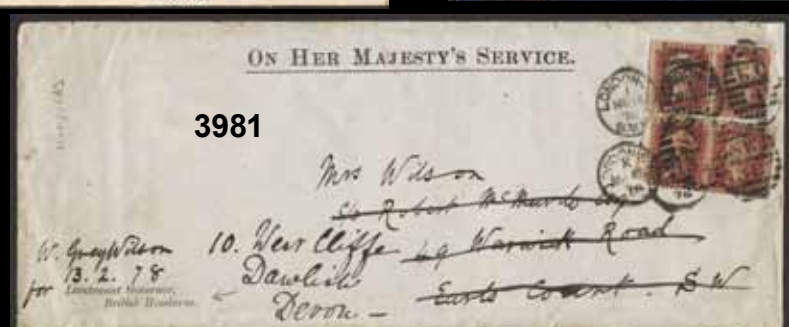 ON HER MAJESTY'S SERVICE.
3981
LONDON
Mrs Wilson
c/o Robert McMurdo Esq
10. West Cliffe
69 Warwick Road
Dawlish
Earls Court. S W
Devon —
W. Grey Wilson
13. 2. 78
for Lieutenant Governor,
British Honduras.